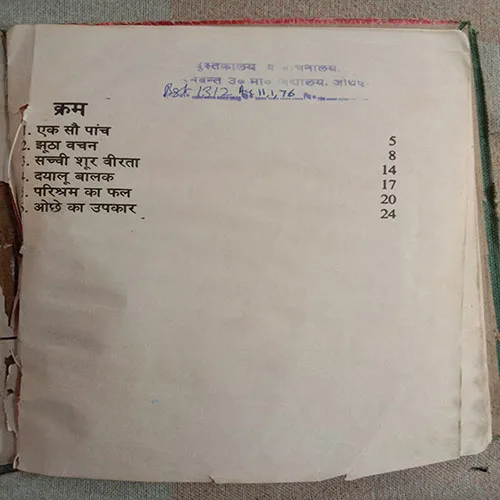 पुस्तकालय व वाचनालय,
उ० मा० विद्यालय, जोधपु
1312 11.1.76
क्रम
1. एक सौ पांच 5
2. झूठा वचन 8
3. सच्ची शूर वीरता 14
4. दयालू बालक 17
5. परिश्रम का फल 20
6. ओछे का उपकार 24